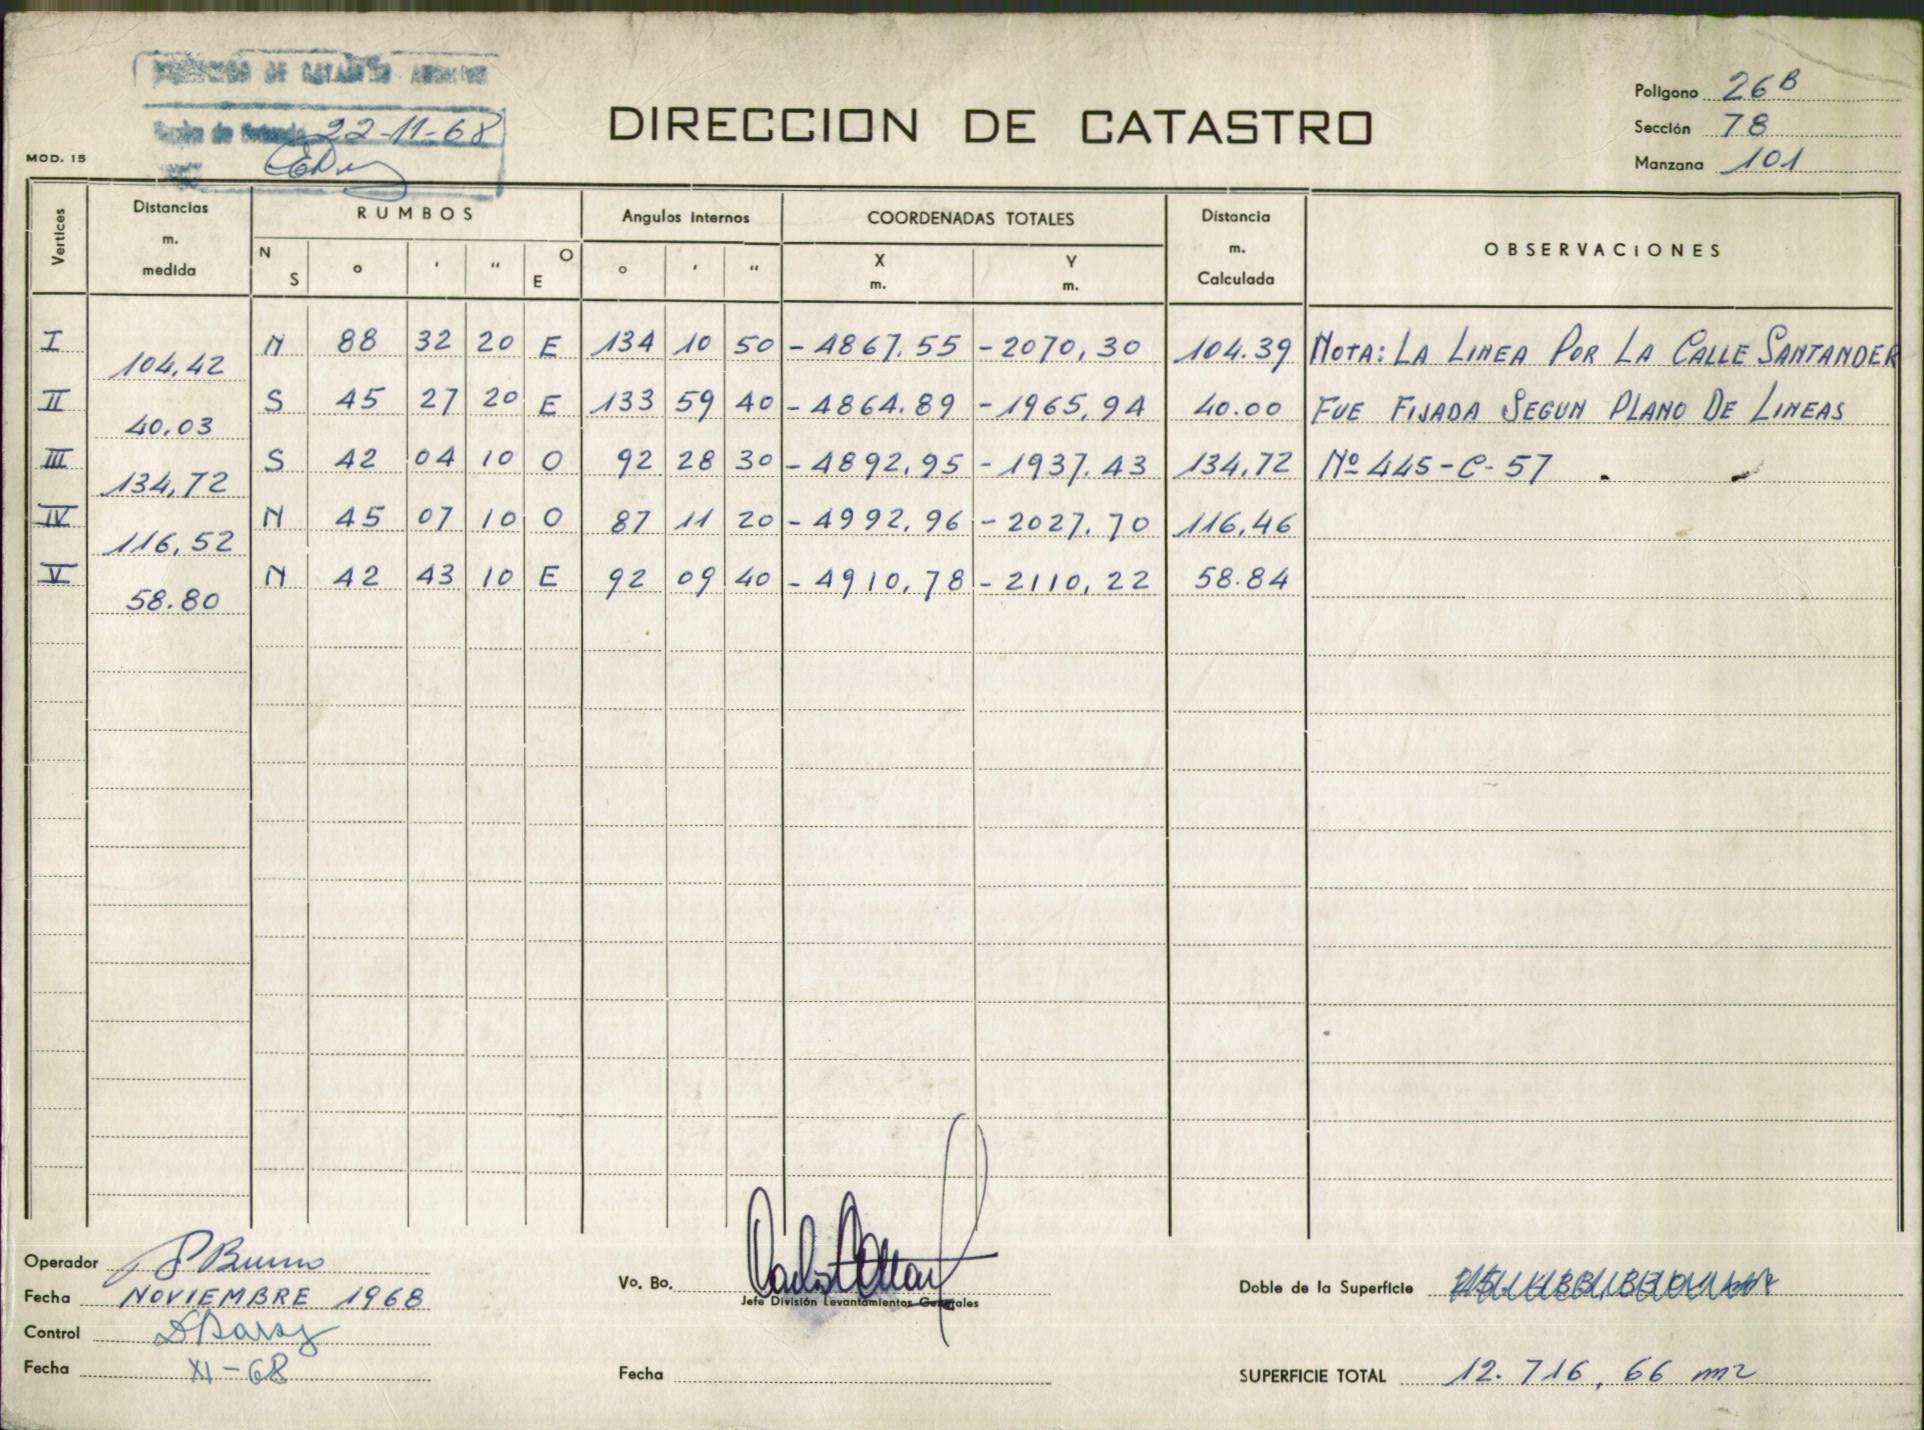 DE CATASTRO
22-11-68
DIRECCION DE CATASTRO
Poligono 26B
Sección 78
Manzana 101
MOD. 15
Vertices Distancias m. medida RUMBOS Angulos internos COORDENADAS TOTALES Distancia m. Calculada OBSERVACIONES
N S ° ' " O E ° ' " X m. Y m.
I 104,42 N 88 32 20 E 134 10 50 -4867.55 -2070,30 104.39 NOTA: LA LINEA POR LA CALLE SANTANDER
II 40,03 S 45 27 20 E 133 59 40 -4864.89 -1965,94 40.00 FUE FIJADA SEGUN PLANO DE LINEAS
III 134,72 S 42 04 10 O 92 28 30 -4892,95 -1937.43 134,72 Nº 445-C-57
IV 116,52 N 45 07 10 O 87 11 20 -4992,96 -2027.70 116,46
V 58.80 N 42 43 10 E 92 09 40 -4910,78 -2110,22 58.84
Operador
Fecha NOVIEMBRE 1968
Control
Fecha XI-68
Vo. Bo.
Jefe División Levantamientos Generales
Fecha
Doble de la Superficie
SUPERFICIE TOTAL 12.716,66 m2